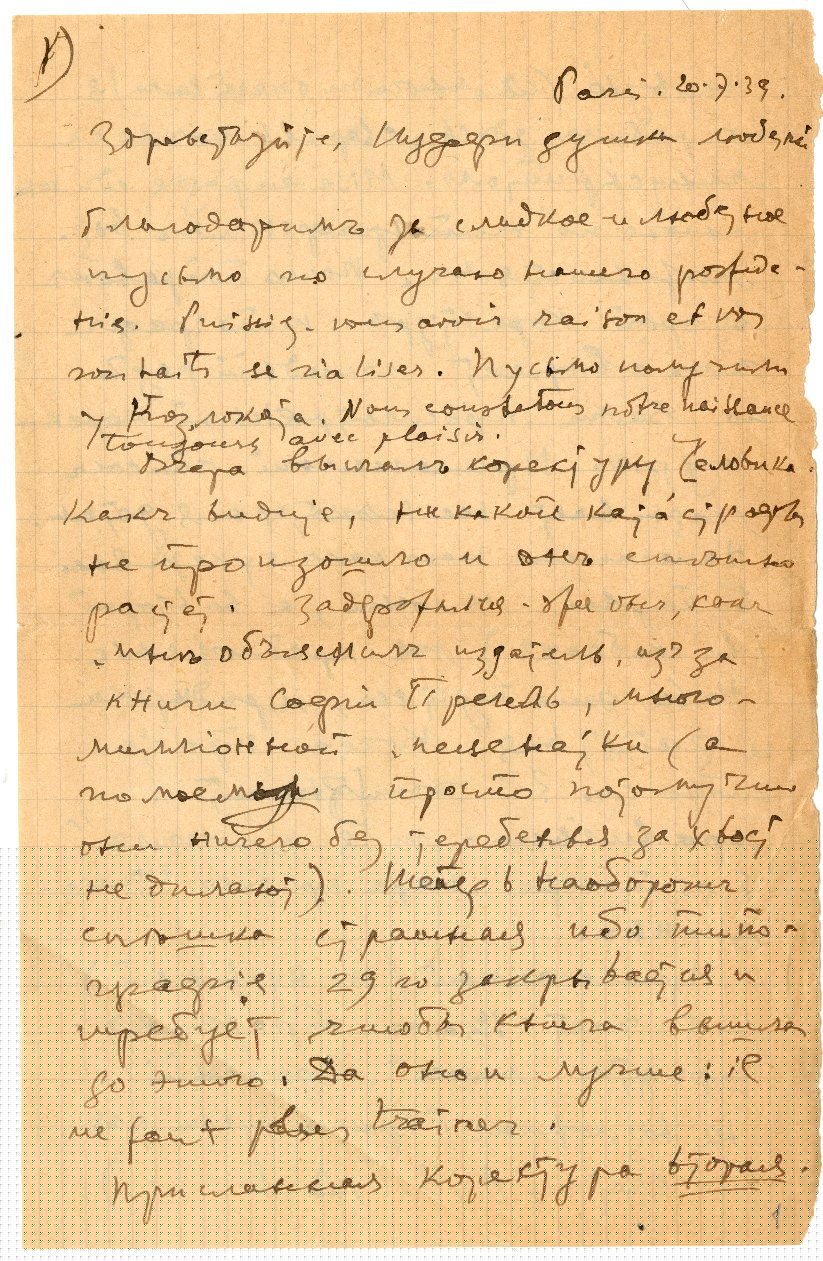 1)
Paris. 20.7.39.
Здравствуйте, душка любезный
благодаримъ за сладкое и любезное
письмо по случаю нашего рожде-
нія. Puissiez-vous avoir raison et vos
souhaits se réaliser. Письмо получили
у Nous constatons nôtre naissance
toujours avec plaisir.
Вчера выслалъ коректуру Человѣка.
Какъ видите, никакой катастрофы
не произошло и онъ спѣшно
растетъ. онъ, какъ
мнѣ объяснилъ издатель, изъ за
книги Софіи Прегель, много-
милліонной меценатки (а
по моему просто потому что
они ничего безъ теребенья за хвостъ
не дѣлаютъ). Теперь наоборотъ
спѣшка страшная ибо типо-
графія 29го закрывается и
требуетъ чтобы книга вышла
до этого. Да оно и лучше: il
ne faut plus traîner.
Присланная коректура вторая.
1